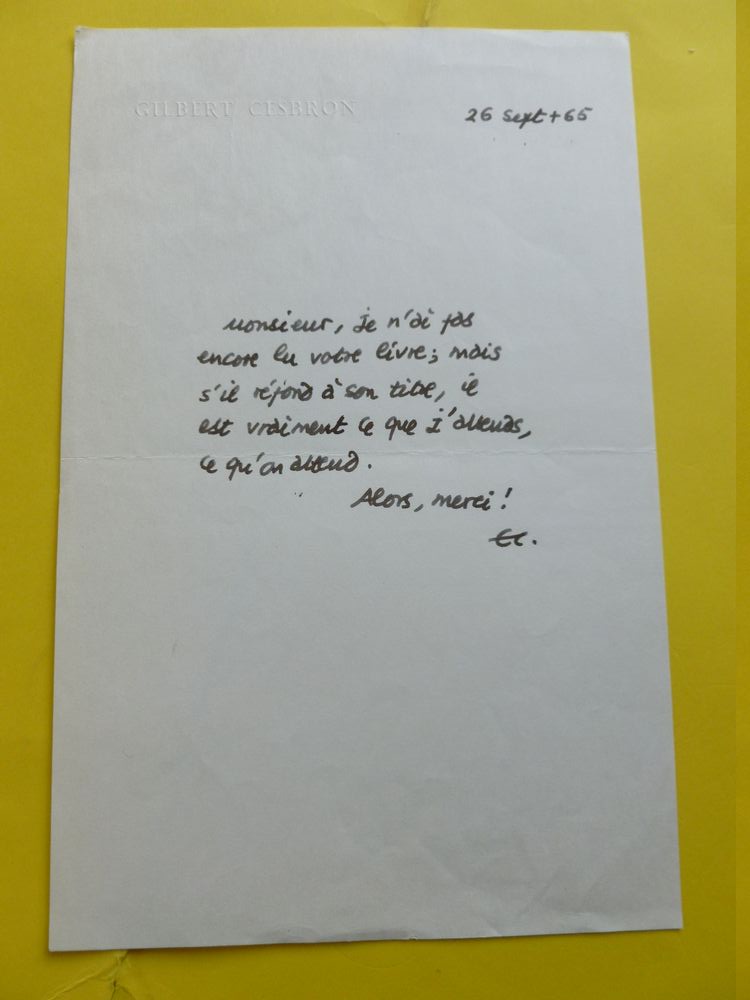 GILBERT CESBRON
26 Sept + 65
Monsieur, je n'ai pas
encore lu votre livre; mais
s'il répond à son titre, il
est vraiment ce que j'attends,
ce qu'on attend.
Alors, merci !
GC.